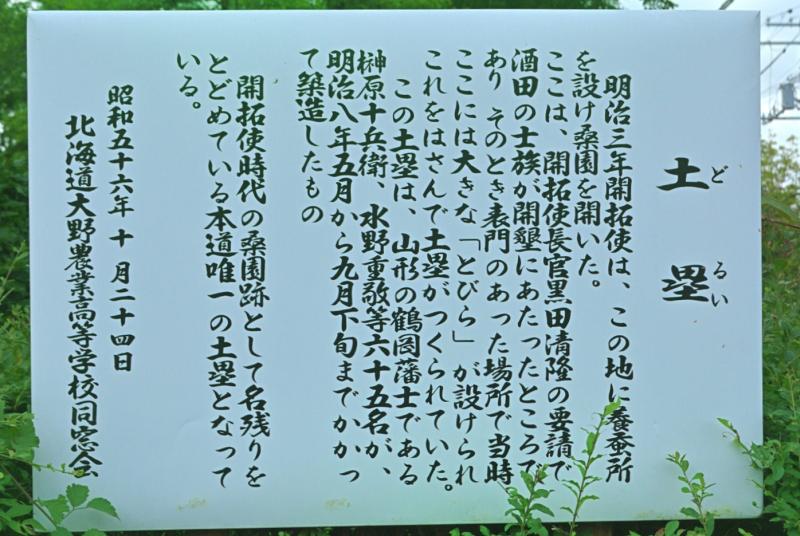 土塁
どるい
明治三年開拓使は、この地に養蚕所
を設け桑園を開いた。
ここは、開拓使長官黒田清隆の要請で
酒田の士族が開墾にあたったところで
あり そのとき表門のあった場所で当時
ここには大きな「とびら」が設けられ
これをはさんで土塁がつくられていた。
この土塁は、山形の鶴岡藩士である
榊原十兵衛、水野重敬等六十五名が、
明治八年五月から九月下旬までかかっ
て築造したもの
開拓使時代の桑園跡として名残りを
とどめている本道唯一の土塁となって
いる。
昭和五十六年十月二十四日
北海道大野農業高等学校同窓会